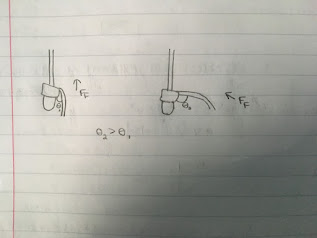 ↑ F_F
θ₁
θ₂
↖ F_F
θ₂ > θ₁